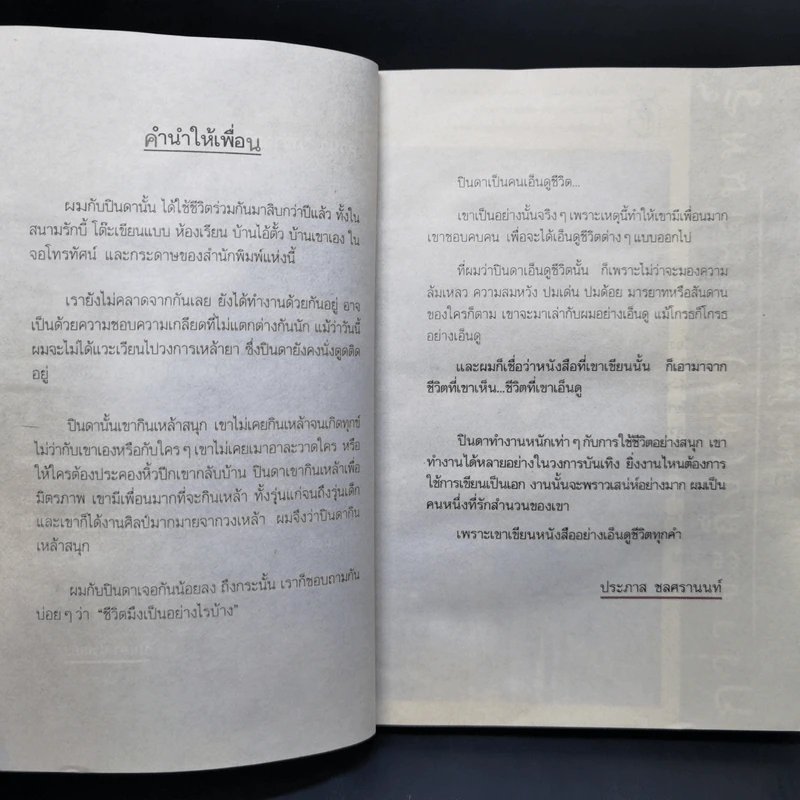 คำนำให้เพื่อน
ผมกับปินดานั้น ได้ใช้ชีวิตร่วมกันมาสิบกว่าปีแล้ว ทั้งใน
สนามรักบี้ โต๊ะเขียนแบบ ห้องเรียน บ้านไอ้ตั้ว บ้านเขาเอง ใน
จอโทรทัศน์ และกระดาษของสำนักพิมพ์แห่งนี้
เรายังไม่คลาดจากกันเลย ยังได้ทำงานด้วยกันอยู่ อาจ
เป็นด้วยความชอบความเกลียดที่ไม่แตกต่างกันนัก แม้ว่าวันนี้
ผมจะไม่ได้แวะเวียนไปวงการเหล้ายา ซึ่งปินดายังคงนั่งตูดติด
อยู่
ปินดานั้นเขากินเหล้าสนุก เขาไม่เคยกินเหล้าจนเกิดทุกข์
ไม่ว่ากับเขาเองหรือกับใครๆ เขาไม่เคยเมาอาละวาดใคร หรือ
ให้ใครต้องประคองหิ้วปีกเขากลับบ้าน ปินดาเขากินเหล้าเพื่อ
มิตรภาพ เขามีเพื่อนมากที่จะกินเหล้า ทั้งรุ่นแก่จนถึงรุ่นเด็ก
และเขาก็ได้งานศิลป์มากมายจากวงเหล้า ผมจึงว่าปินดากิน
เหล้าสนุก
ผมกับปินดาเจอกันน้อยลง ถึงกระนั้น เราก็ชอบถามกัน
บ่อยๆ ว่า "ชีวิตมึงเป็นอย่างไรบ้าง"
ปินดาเป็นคนเอ็นดูชีวิต...
เขาเป็นอย่างนั้นจริงๆ เพราะเหตุนี้ทำให้เขามีเพื่อนมาก
เขาชอบคบคน เพื่อจะได้เอ็นดูชีวิตต่างๆ แบบออกไป
ที่ผมว่าปินดาเอ็นดูชีวิตนั้น ก็เพราะไม่ว่าจะมองความ
ล้มเหลว ความสมหวัง ปมเด่น ปมด้อย มารยาทหรือสันดาน
ของใครก็ตาม เขาจะมาเล่ากับผมอย่างเอ็นดู แม้โกรธก็โกรธ
อย่างเอ็นดู
และผมก็เชื่อว่าหนังสือที่เขาเขียนนั้น ก็เอามาจาก
ชีวิตที่เขาเห็น...ชีวิตที่เขาเอ็นดู
ปินดาทำงานหนักเท่าๆ กับการใช้ชีวิตอย่างสนุก เขา
ทำงานได้หลายอย่างในวงการบันเทิง ยิ่งงานไหนต้องการ
ใช้การเขียนเป็นเอก งานนั้นจะพราวเสน่ห์อย่างมาก ผมเป็น
คนหนึ่งที่รักสำนวนของเขา
เพราะเขาเขียนหนังสืออย่างเอ็นดูชีวิตทุกคำ
ประภาส ชลศรานนท์